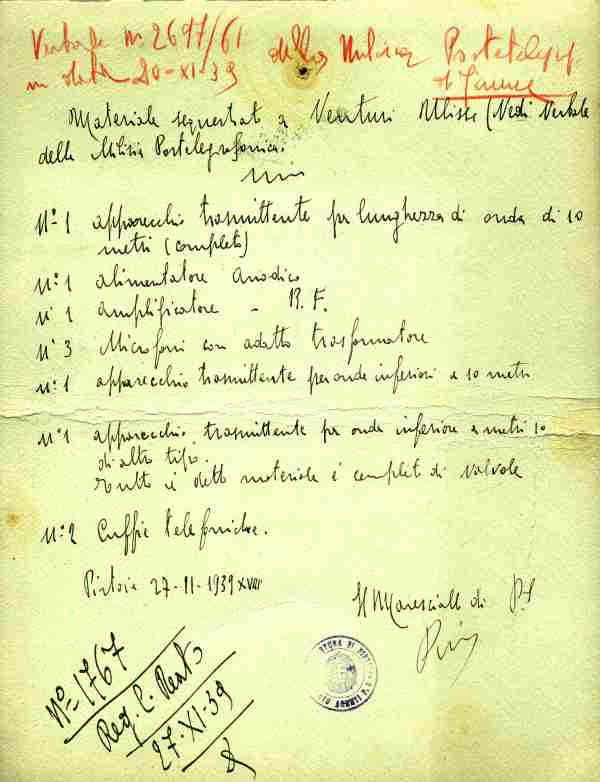 Verbale nº 2697/61 della Milizia Postelegraf
in data 20-XI-39 di Firenze
Materiale sequestrato a Venturi Ulisse (Vedi Verbale
della Milizia Postelegrafonica.
Nº 1 apparecchio trasmittente per lunghezza di onda di 10
metri (completo)
nº 1 alimentatore anodico
nº 1 amplificatore - B. F.
nº 3 Microfoni con adatto trasformatore
nº 1 apparecchio trasmittente per onde inferiori a 10 metri
nº 1 apparecchio trasmittente per onde inferiore a metri 10
di altro tipo.
Tutto il detto materiale è completo di valvole
nº 2 Cuffie telefoniche.
Pistoia 27-11-1939 XVIII
Il Maresciallo di
Nº 1767
Reg. C. Reato
27-XI-39